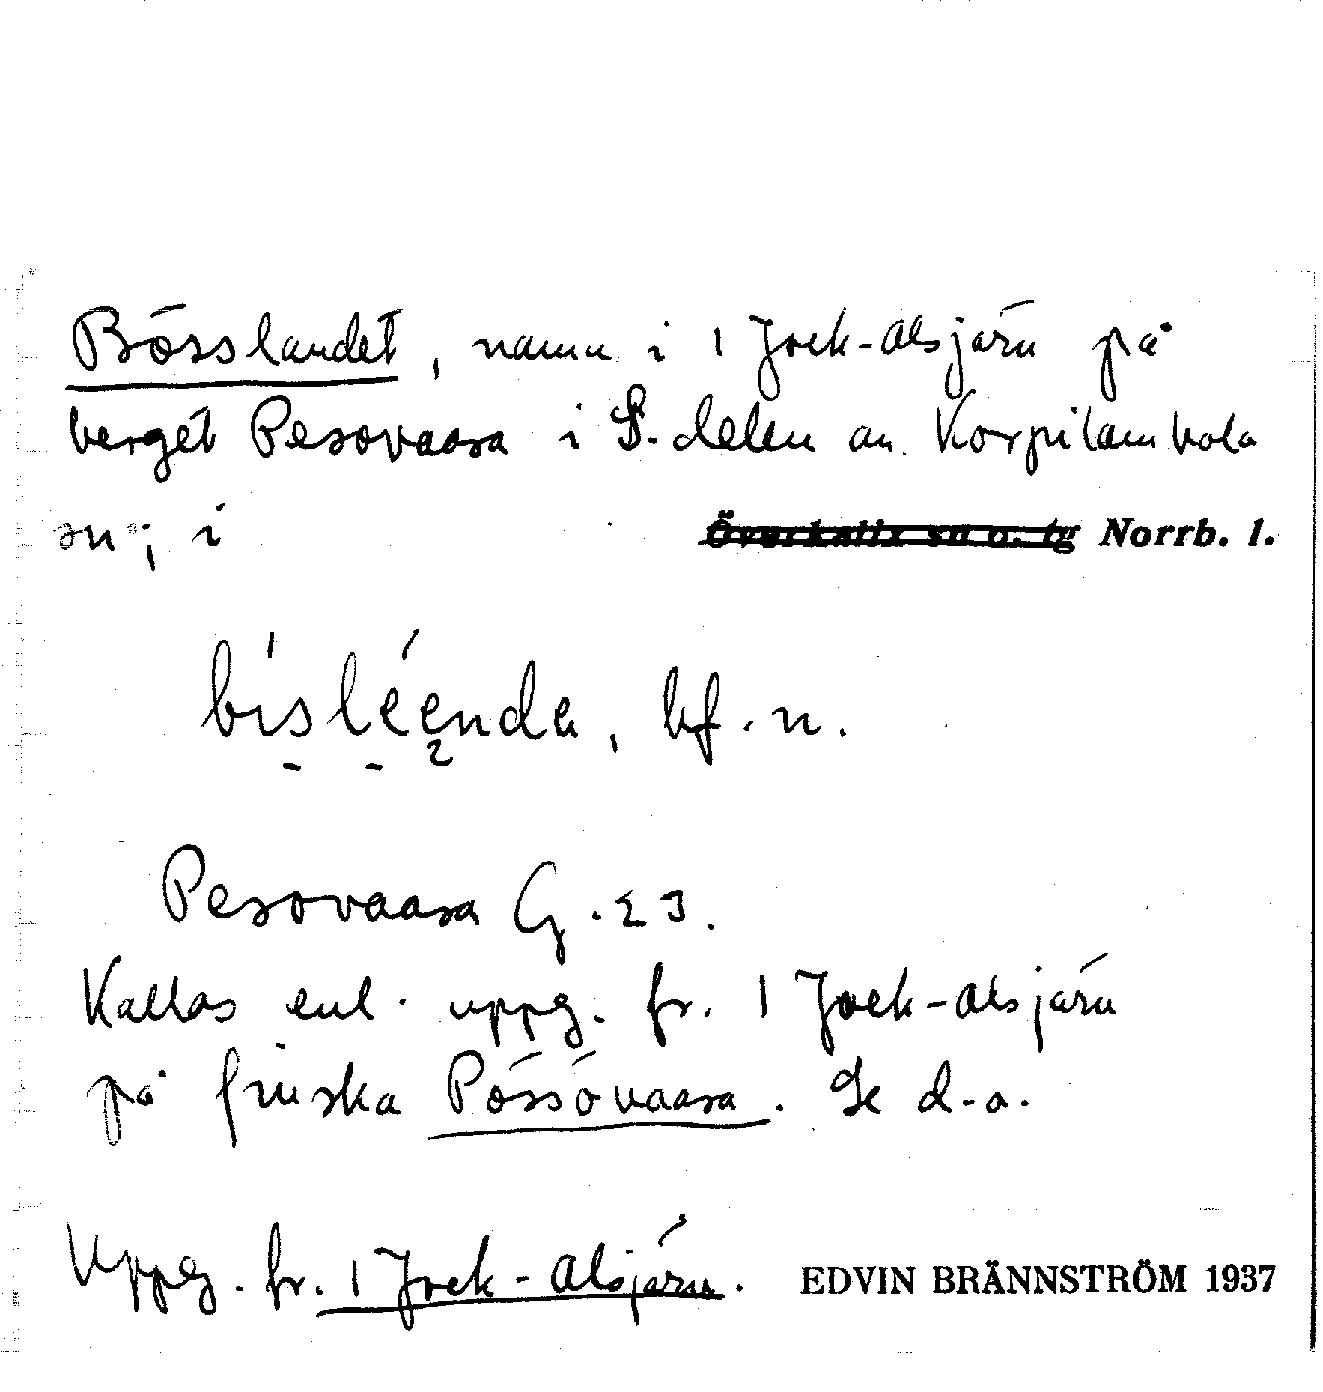 Bösslandet, namn i 1 Jock-Alsjärv på
berget Pesovaara i S. delen av Korpilombolo
sn; i ~~Överkalix sn o. tg~~ Norrb. l.
bísléenda, bf. n.
Pesovaara G. 23.
Kallas enl. uppg. fr. 1 Jock-Alsjärv
på finska Pössövaara. Se d.o.
Uppg. fr. 1 Jock-Alsjärv. EDVIN BRÄNNSTRÖM 1937